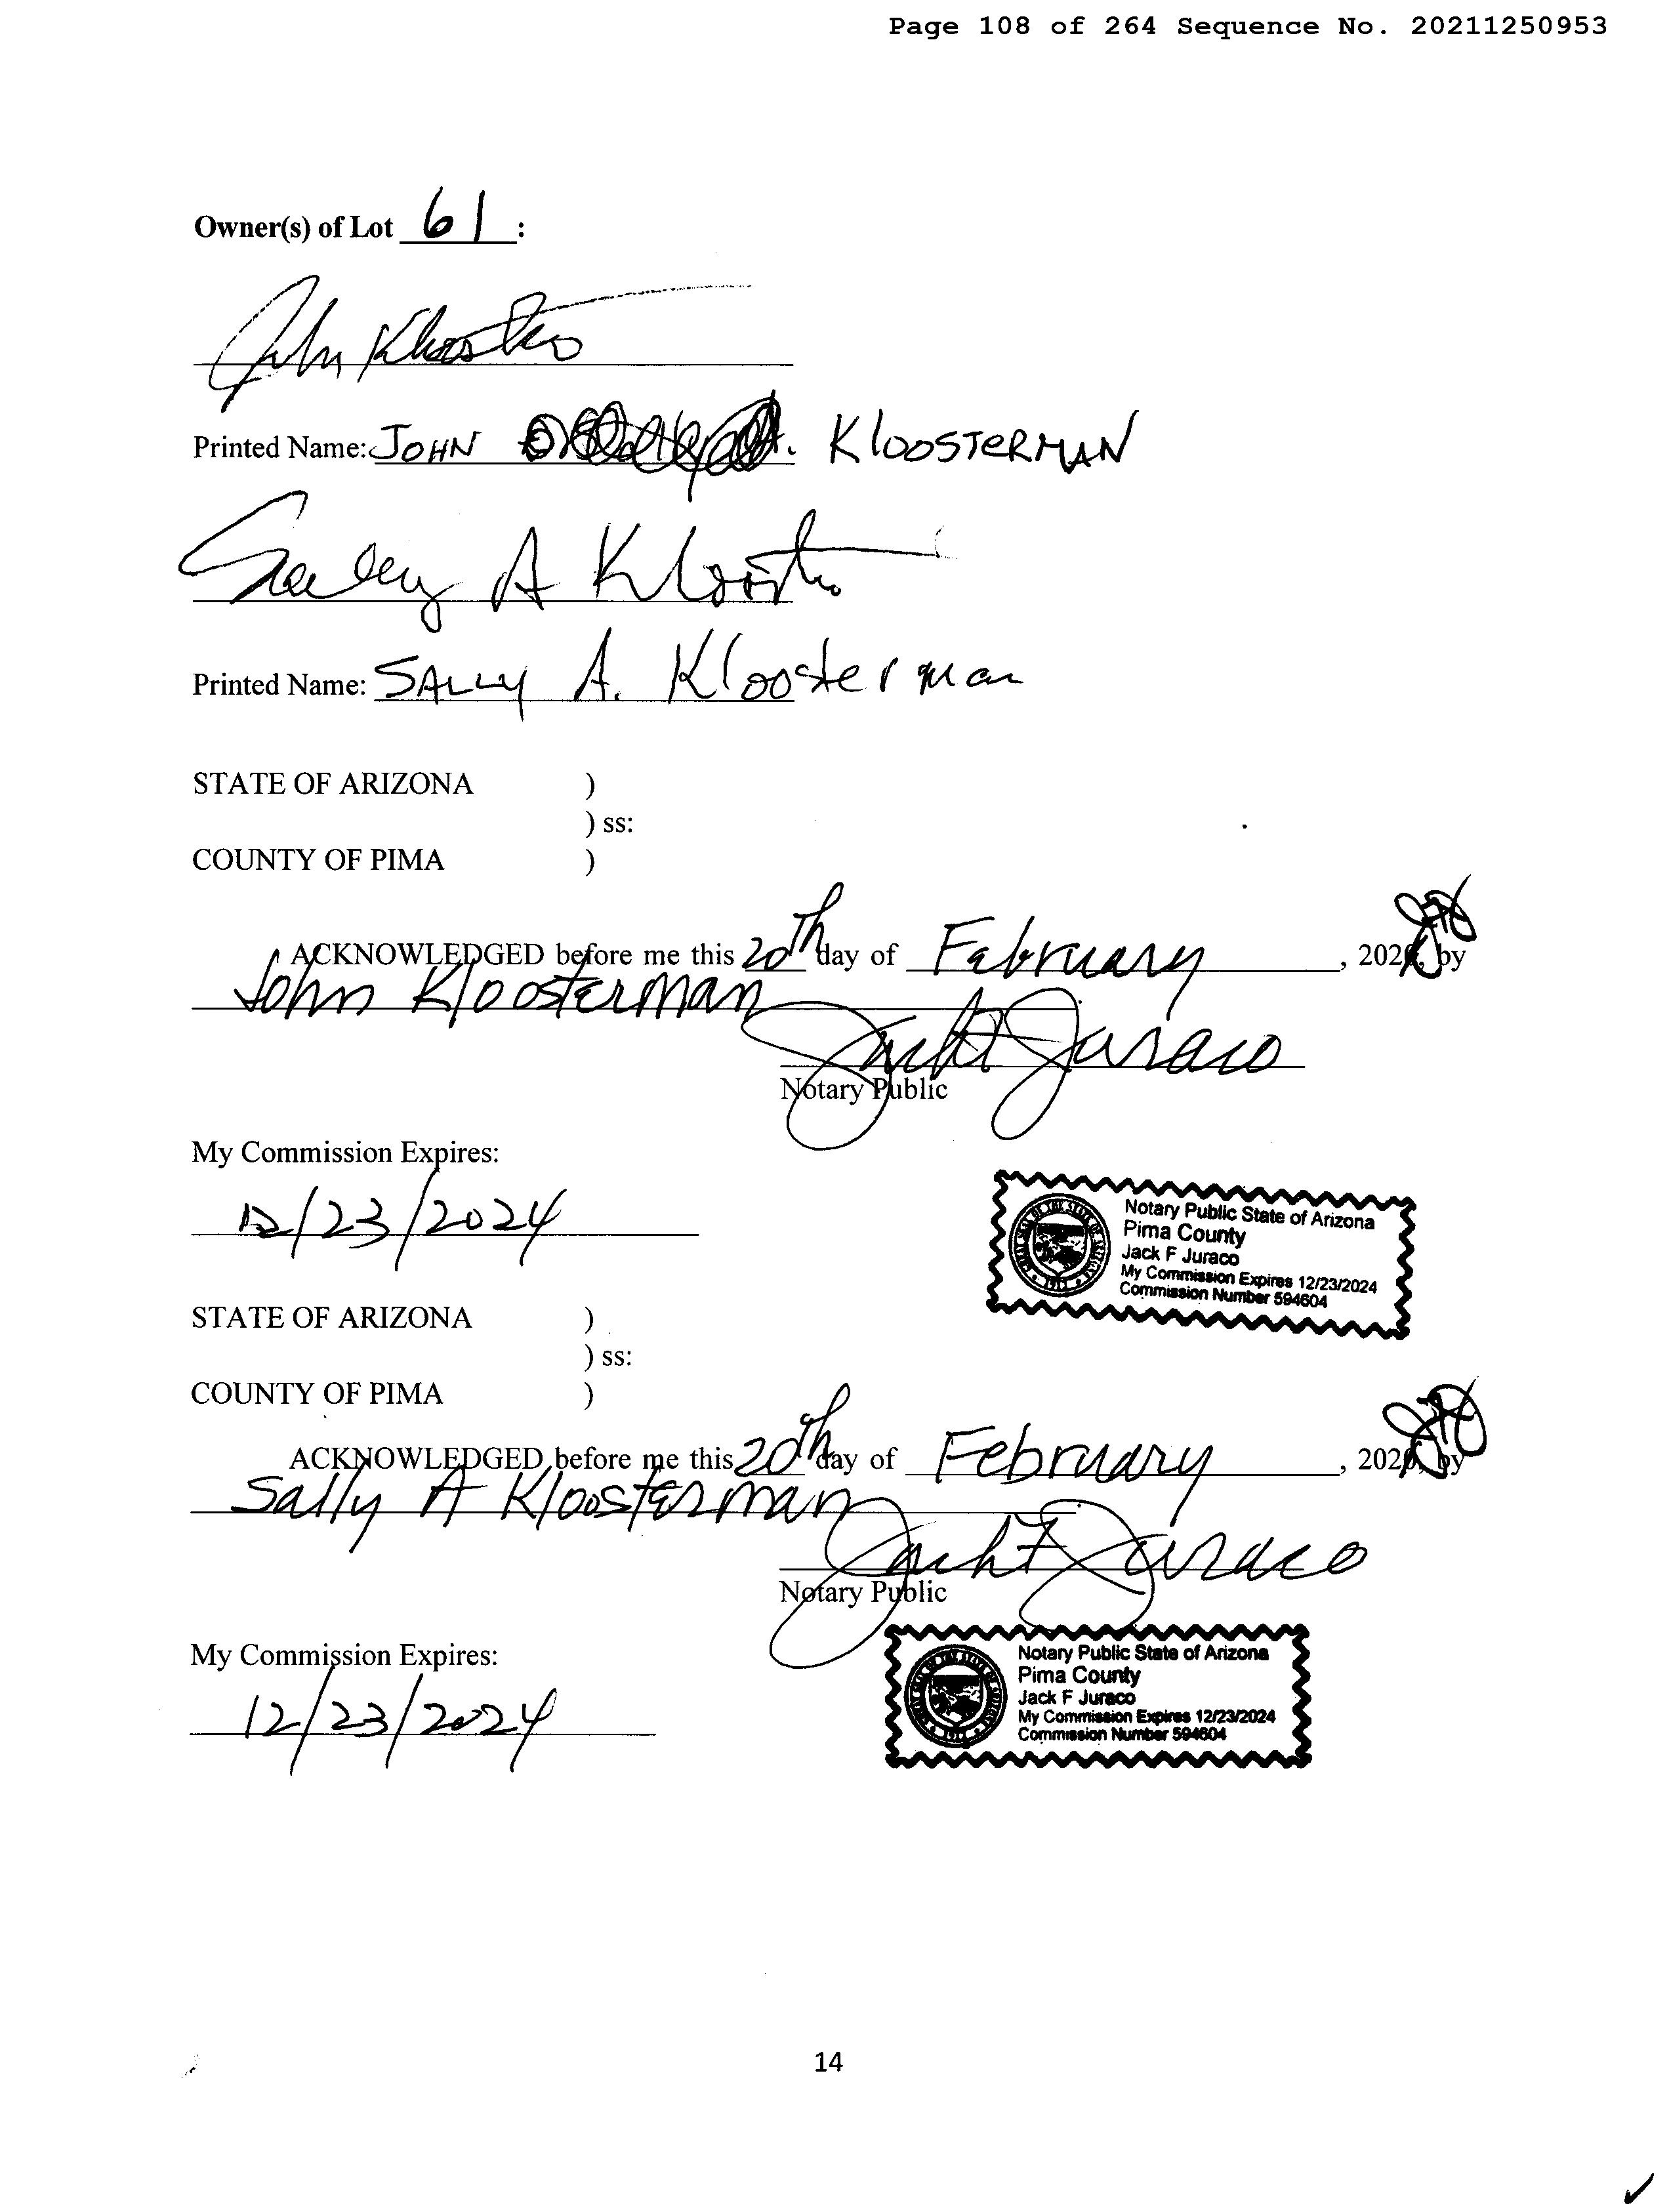 Page 108 of 264 Sequence No. 20211250953
Owner(s) of Lot 61 :
John
Printed Name: JOHN A. KloosTeRMAN
Sally A
Printed Name: SALLY A. Kloosterman
STATE OF ARIZONA )
) ss:
COUNTY OF PIMA )
ACKNOWLEDGED before me this 20th day of February, 202 by
John Kloosterman
Jack F Juraco
Notary Public
My Commission Expires:
12/23/2024
Notary Public State of Arizona
Pima County
Jack F Juraco
My Commission Expires 12/23/2024
Commission Number 594604
GREAT SEAL OF THE STATE OF ARIZONA
1912
STATE OF ARIZONA )
) ss:
COUNTY OF PIMA )
ACKNOWLEDGED before me this 20th day of February, 202 by
Sally A Kloosterman
Jack F Juraco
Notary Public
My Commission Expires:
12/23/2024
Notary Public State of Arizona
Pima County
Jack F Juraco
My Commission Expires 12/23/2024
Commission Number 594604
GREAT SEAL OF THE STATE OF ARIZONA
1912
14